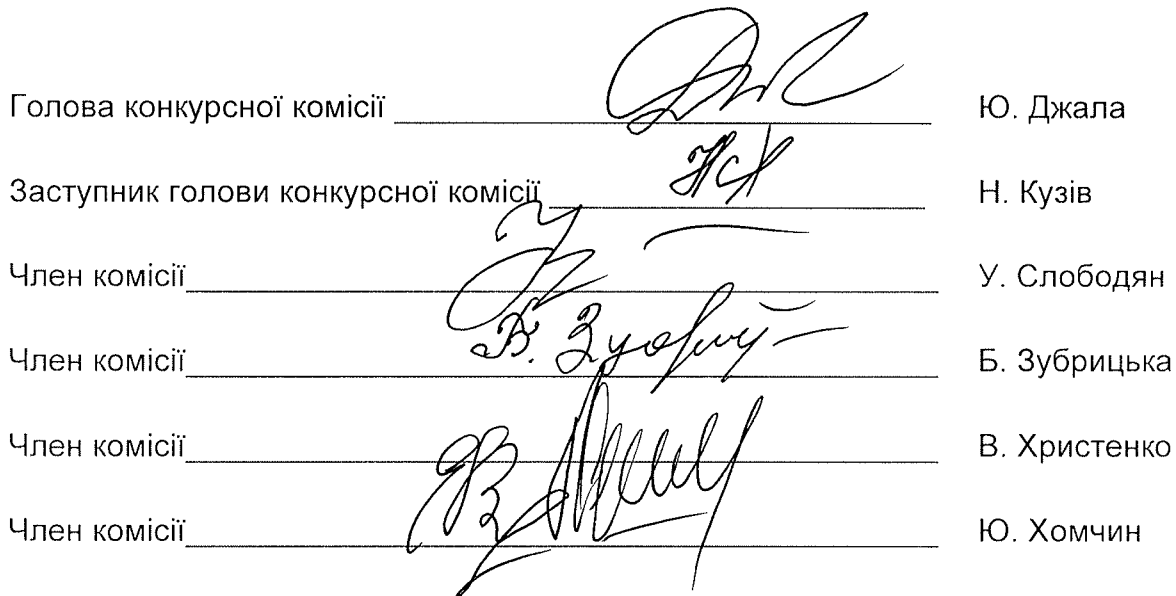 Голова конкурсної комісії Ю. Джала
Заступник голови конкурсної комісії Н. Кузів
Член комісії У. Слободян
Член комісії Б. Зубрицька
Член комісії В. Христенко
Член комісії Ю. Хомчин